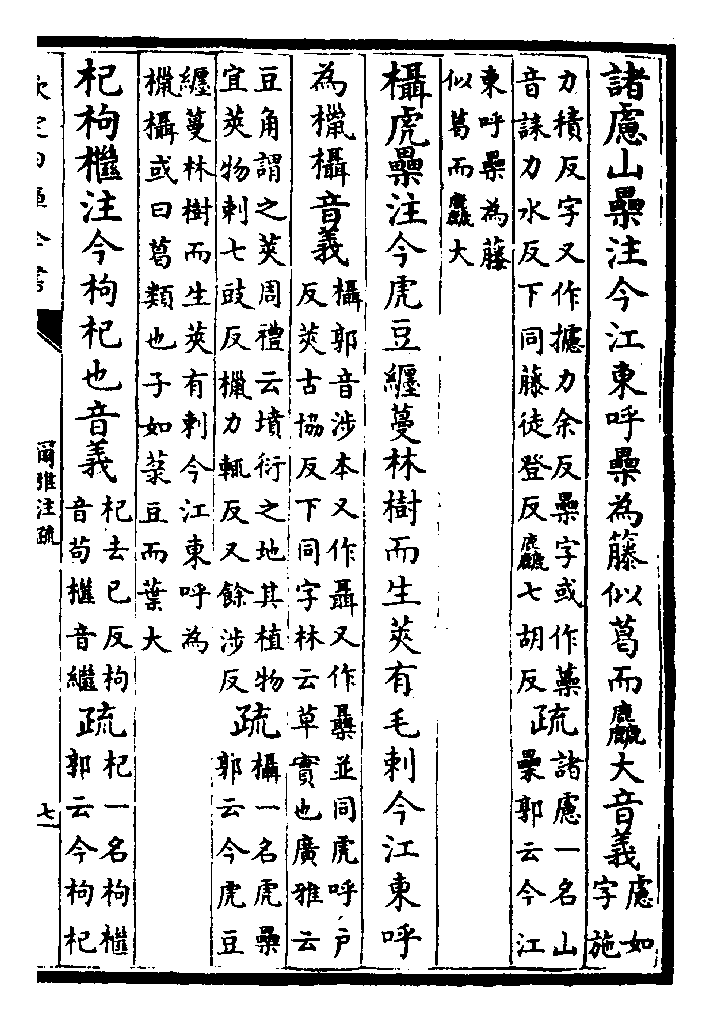 諸慮山櫐注今江東呼櫐為藤似葛而麤大音義慮如
字施
力積反字又作攄力余反櫐字或作蘽
音誄力水反下同藤徒登反麤七胡反疏諸慮一名山
櫐郭云今江
東呼櫐為藤
似葛而麤大
欇虎櫐注今虎豆纏蔓林樹而生莢有毛刺今江東呼
為㯿欇音義欇郭音涉本又作聶又作並同虎呼戶
反莢古協反下同字林云草實也廣雅云
豆角謂之莢周禮云墳衍之地其植物
宜莢物刺七豉反㯿力輒反又餘涉反疏欇一名虎櫐
郭云今虎豆
纏蔓林樹而生莢有刺今江東呼為
㯿欇或曰葛類也子如菉豆而葉大
杞枸檵注今枸杞也音義杞去已反枸
音苟檵音繼疏杞一名枸檵
郭云今枸杞
欽定四庫全書
爾雅注疏
七